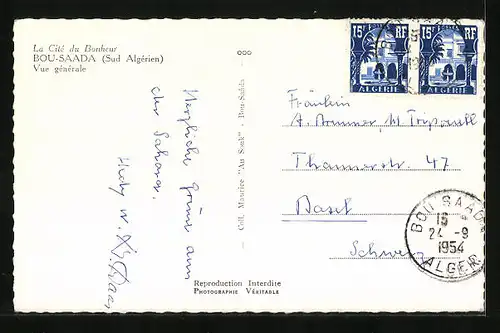 La Cité du Bonheur
BOU-SAADA (Sud Algérien)
Vue générale
Herzliche Grüsse aus
der Sahara.
Hedy u.
Coll. Maurice "Au Souk" - Bou-Saâda
Reproduction Interdite
Photographie Véritable
15F POSTES RF
ALGERIE
15F POSTES RF
ALGERIE
Fräulein
A. Brunner,
Thannerstr. 47
Basel
Schweiz
BOU SAADA
24 - 9
1954
ALGER